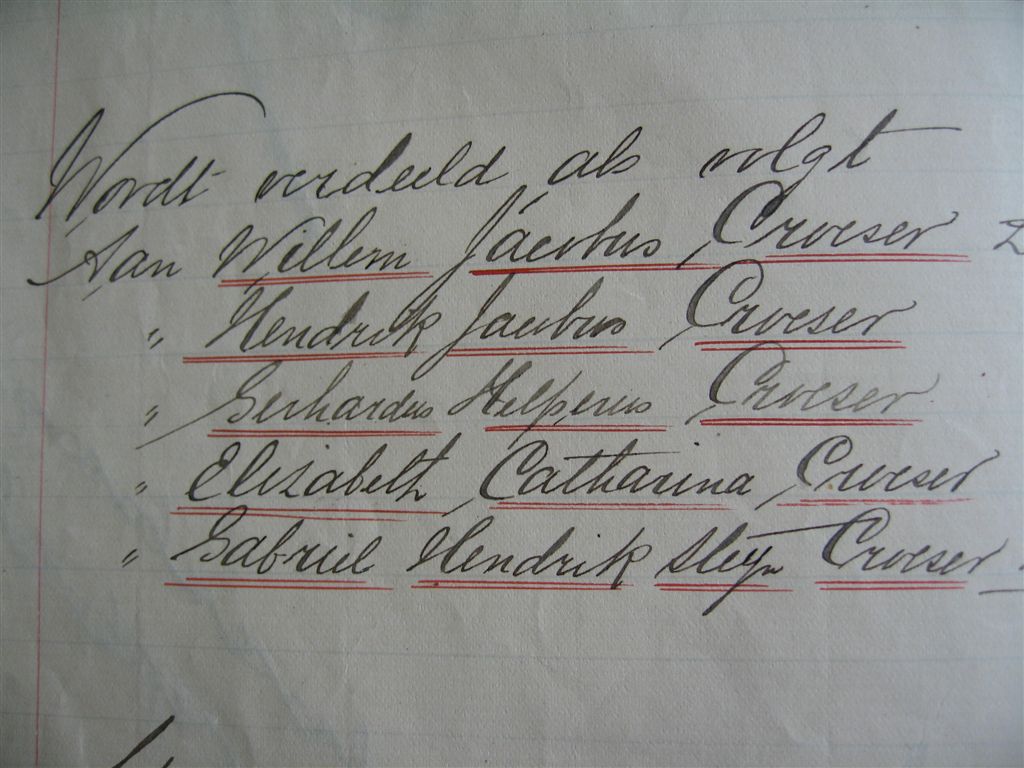 Wordt verdeeld als volgt
Aan Willem Jacobus Croeser
" Hendrik Jacobus Croeser
" Gerhardus Helperus Croeser
" Elizabeth Catharina Croeser
" Gabriel Hendrik Steyn Croeser